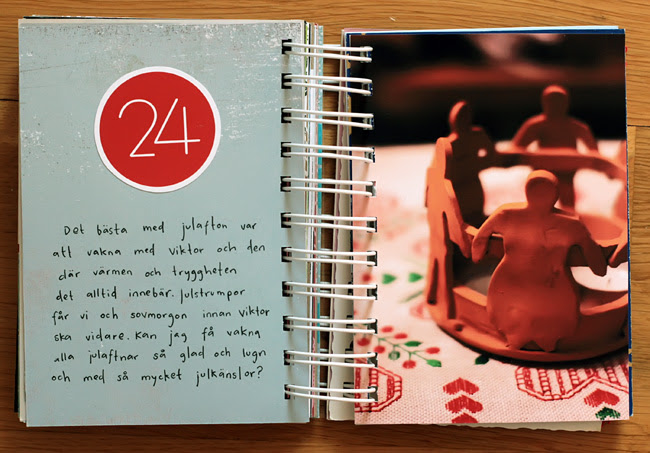 24
Det bästa med julafton var
att vakna med Viktor och den
där värmen och tryggheten
det alltid innebär. Julstrumpor
får vi och sovmorgon innan Viktor
ska vidare. Kan jag få vakna
alla julaftnar så glad och lugn
och med så mycket julkänslor?